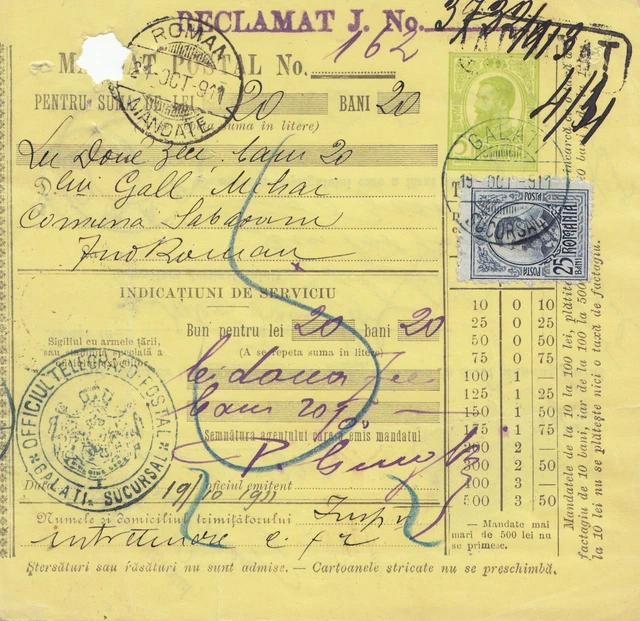 RECLAMAT J. No. 3732/913
MANDAT POSTAL No. 162
ROMAN
OCT-911
MANDATE
PENTRU SUMA DE LEI 20 BANI 20
(Suma în litere)
Lei Doue zeci bani 20
D lui Gall Mihai
Comuna Sabaoani
Jud Roman
GALATI
19-OCT-911
SUCURSALA
POSTA
ROMANIA
25 BANI
POSTA
INDICAȚIUNI DE SERVICIU
Bun pentru lei 20 bani 20
Sigiliul cu armele țării,
(A se repeta suma în litere)
bani 20
Semnătura agentului care a emis mandatul
OFICIUL TELEGRAFO POSTAL
GALATI SUCURSALA
Data 19/10 911 Oficiul emitent
Numele și domiciliul trimițătorului
intretinere c. f. r
Ștersături sau răsături nu sunt admise. — Cartoanele stricate nu se preschimbă.
10 0 10
25 0 25
50 0 50
75 0 75
100 1 —
125 1 25
150 1 50
175 1 75
200 2 —
300 2 50
400 3 —
500 3 50
— Mandate mai
mari de 500 lei nu
se primesc.
Mandatele de la 10 la 100 lei, plătite
factagiu de 10 bani, iar de la 100 la 500
la 10 lei nu se plătește nici o taxă de factagiu.